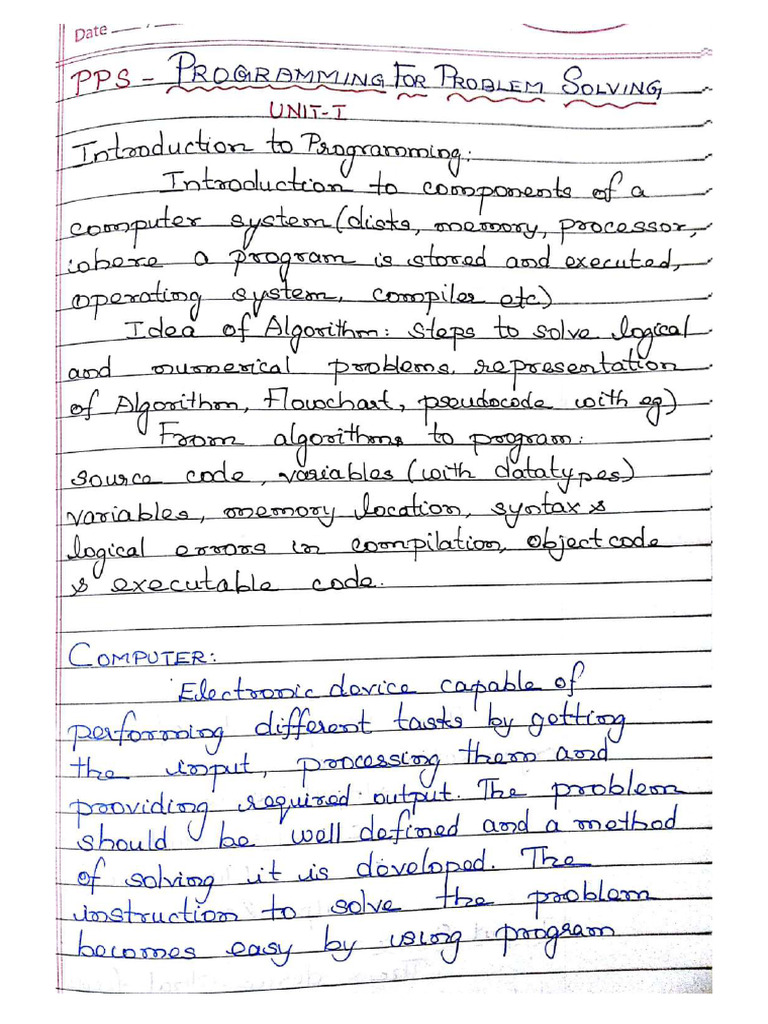 Date
PPS - PROGRAMMING FOR PROBLEM SOLVING
UNIT-I
Introduction to Programming:
Introduction to components of a
computer system (disks, memory, processor,
where a program is stored and executed,
operating system, compiler etc)
Idea of Algorithm: Steps to solve logical
and numerical problems, representation
of Algorithm, Flowchart, pseudocode with eg)
From algorithms to program:
source code, variables (with datatypes)
variables, memory location, syntax &
logical errors in compilation, object code
& executable code.
COMPUTER:
Electronic device capable of
performing different tasks by getting
the input, processing them and
providing required output. The problem
should be well defined and a method
of solving it is developed. The
instruction to solve the problem
becomes easy by using program